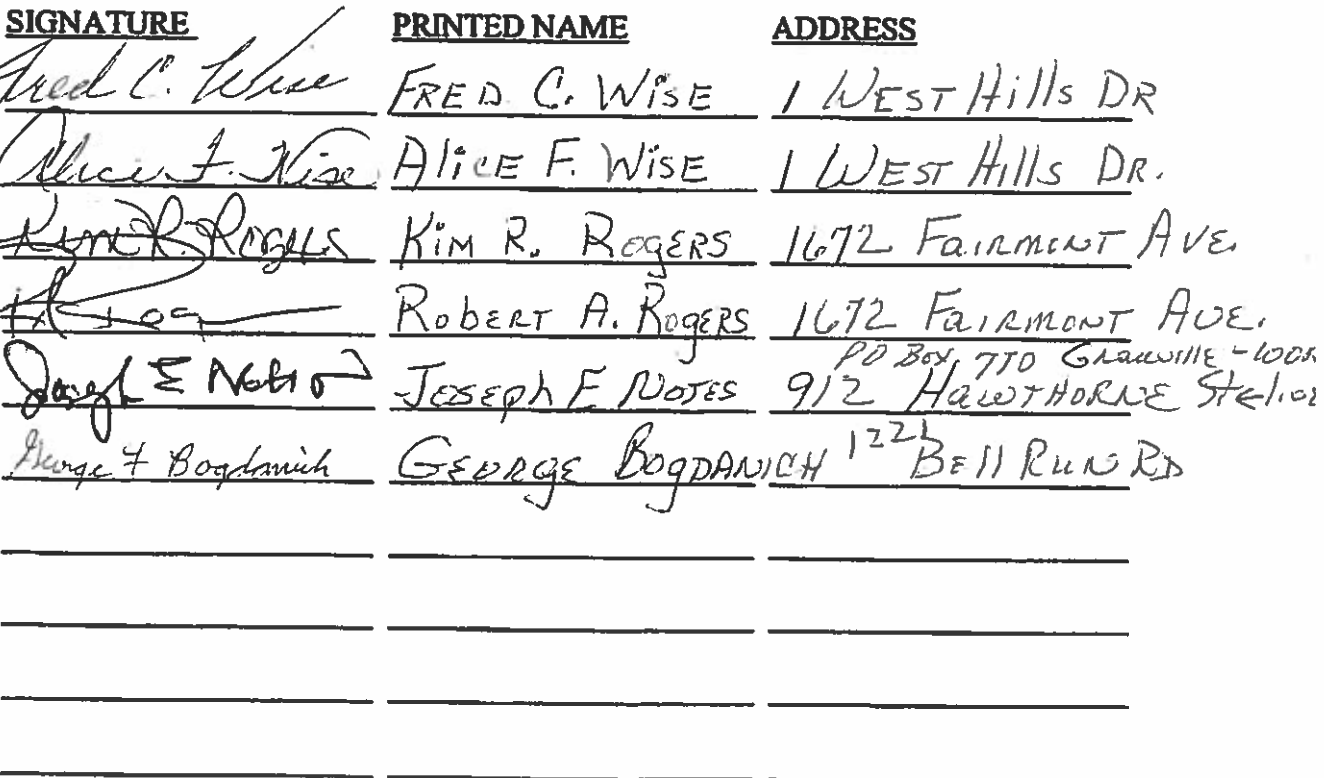 SIGNATURE PRINTED NAME ADDRESS
Fred C. Wise FRED C. WiSE 1 WEST Hills DR
Alice F. Wise AliCE F. WiSE 1 WEST Hills DR.
Kim R. Rogers KiM R. ROGERS 1672 FAIRMONT AVE.
ROBERT A. ROGERS 1672 FAIRMONT AVE.
PO Box 770 GRANVILLE
Joseph E JOSEPH E NOTES 912 HAWTHORNE
George F Bogdanich GEORGE BOGDANICH 1221 BEll RUN RD